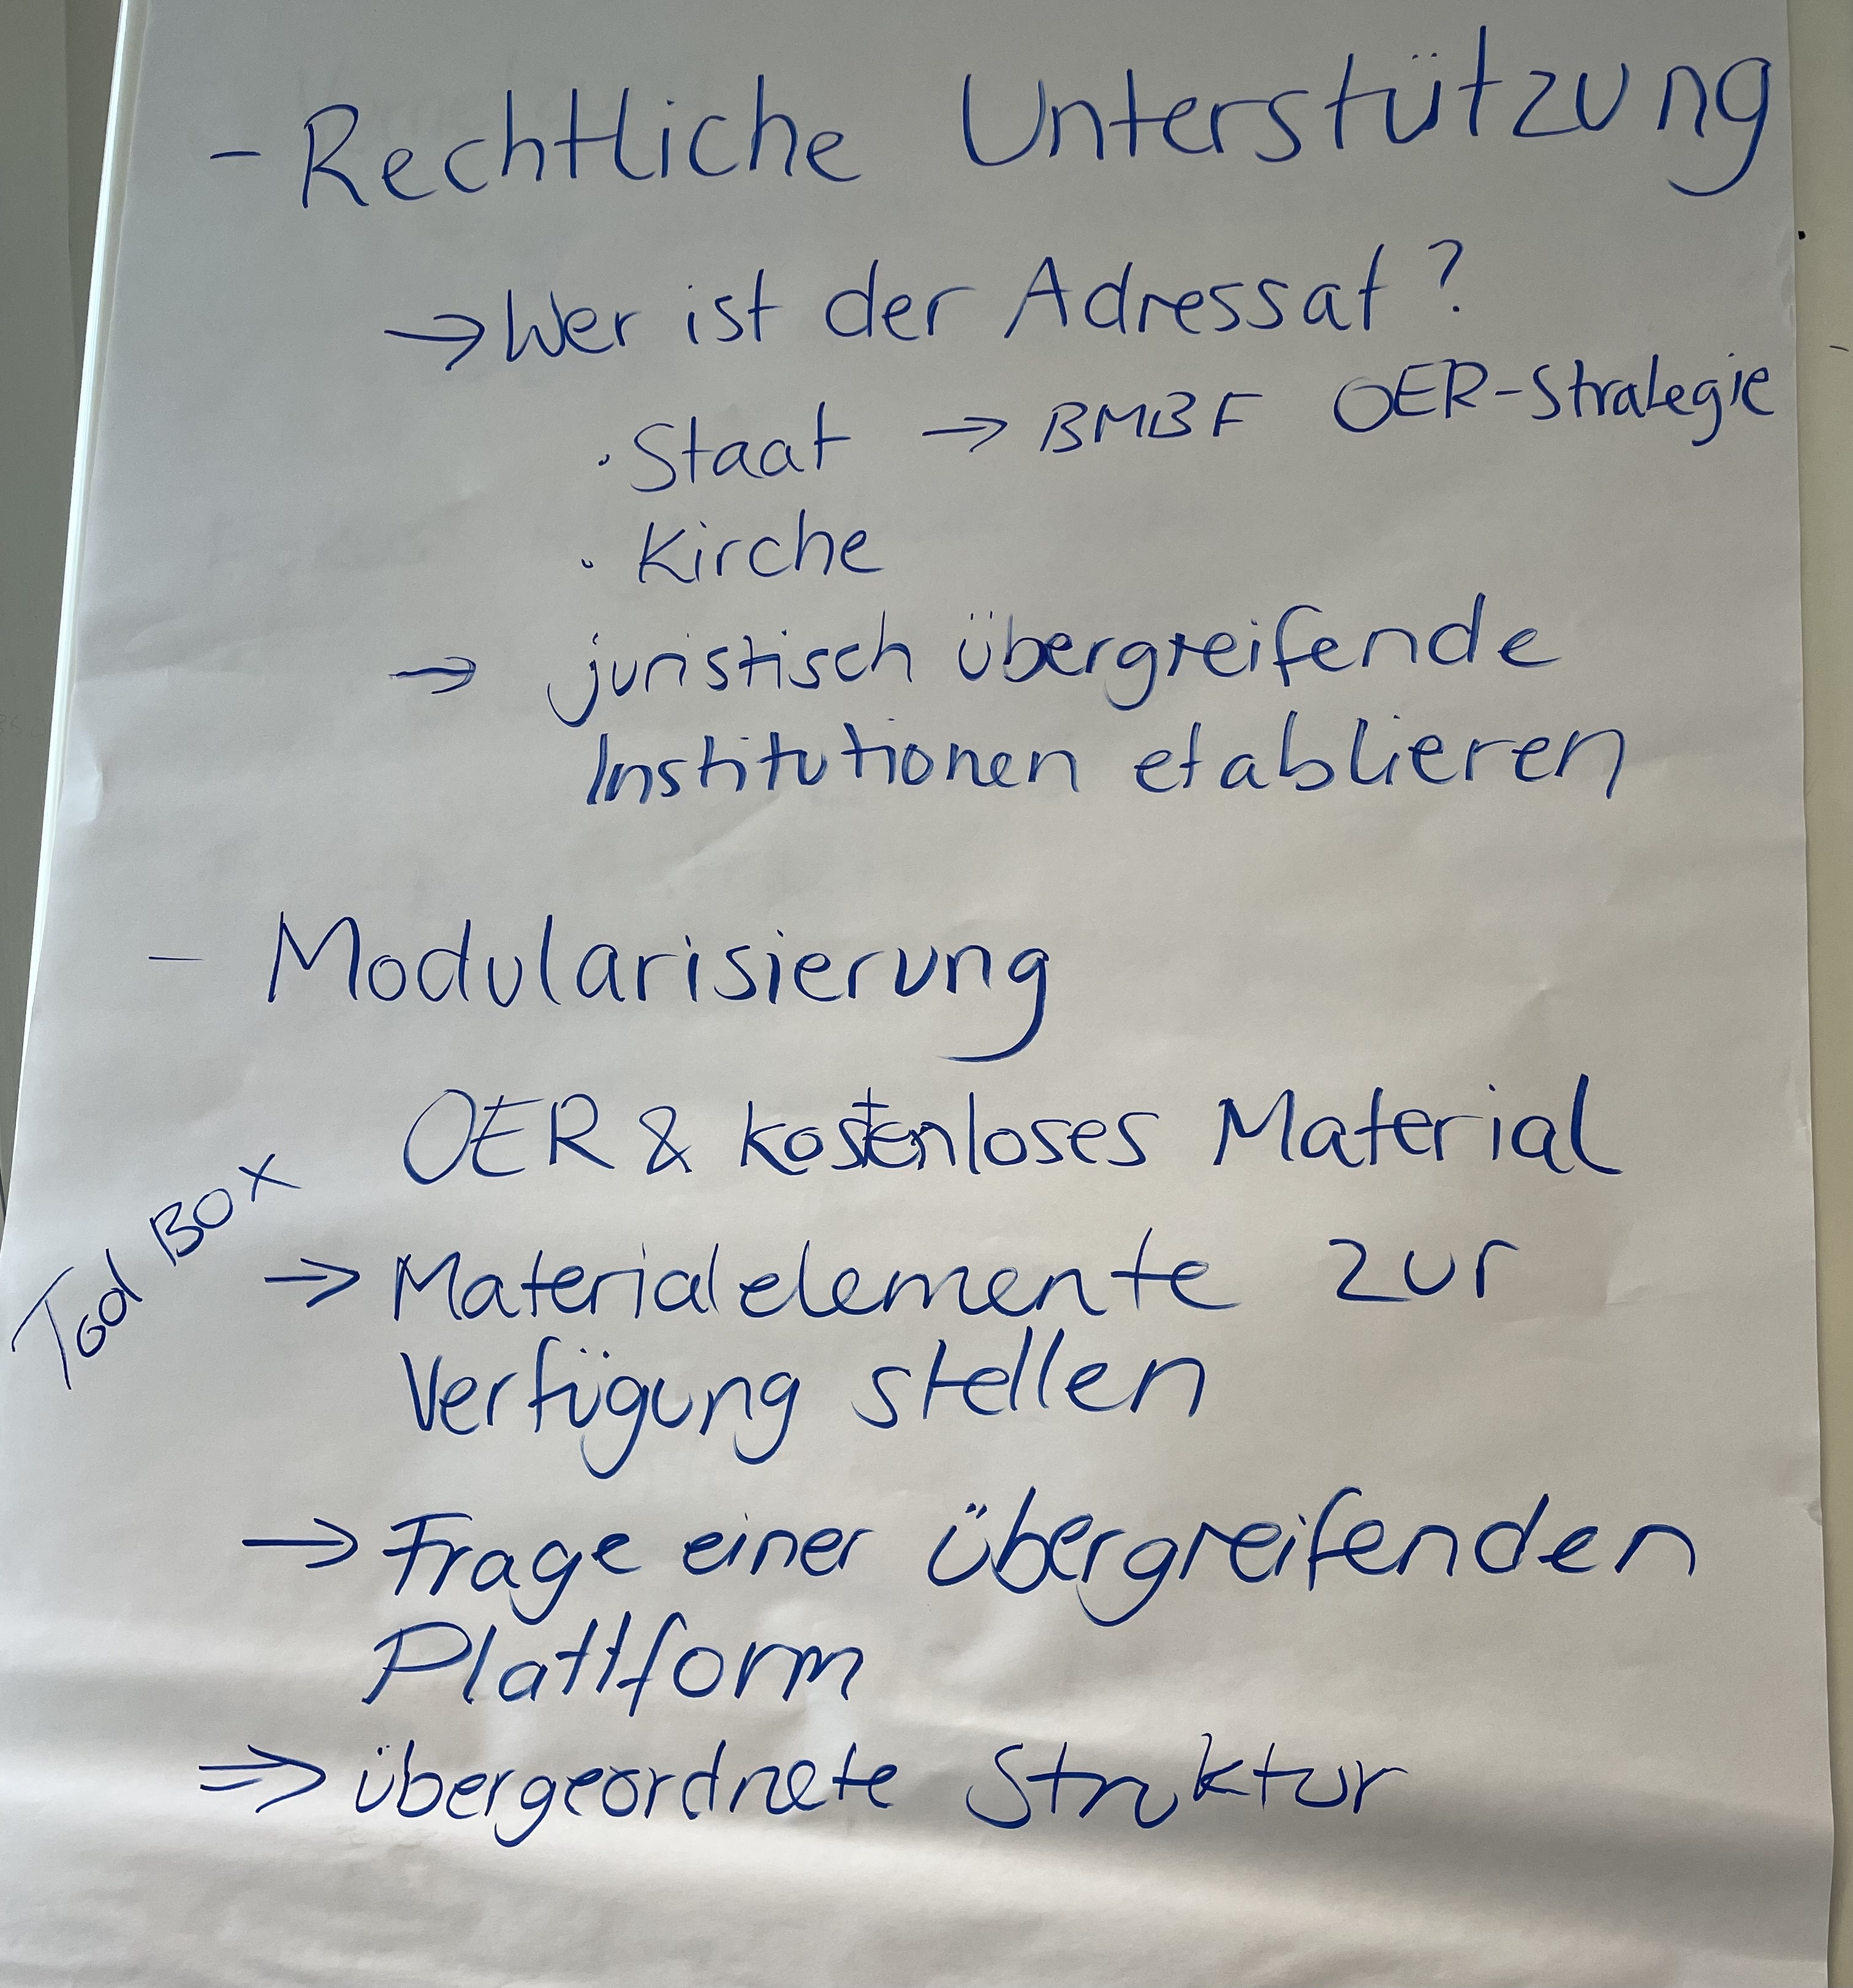 - Rechtliche Unterstützung
→ Wer ist der Adressat?
· Staat → BMBF OER-Strategie
· Kirche
→ juristisch übergreifende
Institutionen etablieren
- Modularisierung
OER & kostenloses Material
Tool Box
→ Materialelemente zur
Verfügung stellen
→ Frage einer übergreifenden
Plattform
⇒ übergeordnete Struktur